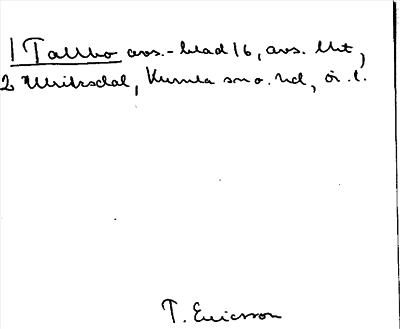 1 Tallbo avs.-blad 16, avs. lht,
2 Ulriksdal, Kumla sn o. hd, ör. l.
T. Ericsson